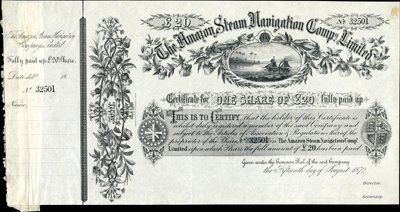 The Amazon Steam Navigation
Company, Limited.
Fully paid up £20 Share.
Dated 18
No 32501
Name
£20
No 32501
The Amazon Steam Navigation Compy. Limited
Certificate for ONE SHARE OF £20 fully paid up
THIS IS TO CERTIFY, that the holder of this Certificate is
entitled to be registered a member of the said Company and
subject to the Articles of Association & Regulations thereof the
proprietor of the Share, No 32501 in The Amazon Steam Navigation Compy.
Limited, upon which Share the full amount of £20 has been paid.
Given under the Common Seal of the said Company
the Fifteenth day of August 1872
Director.
Secretary.